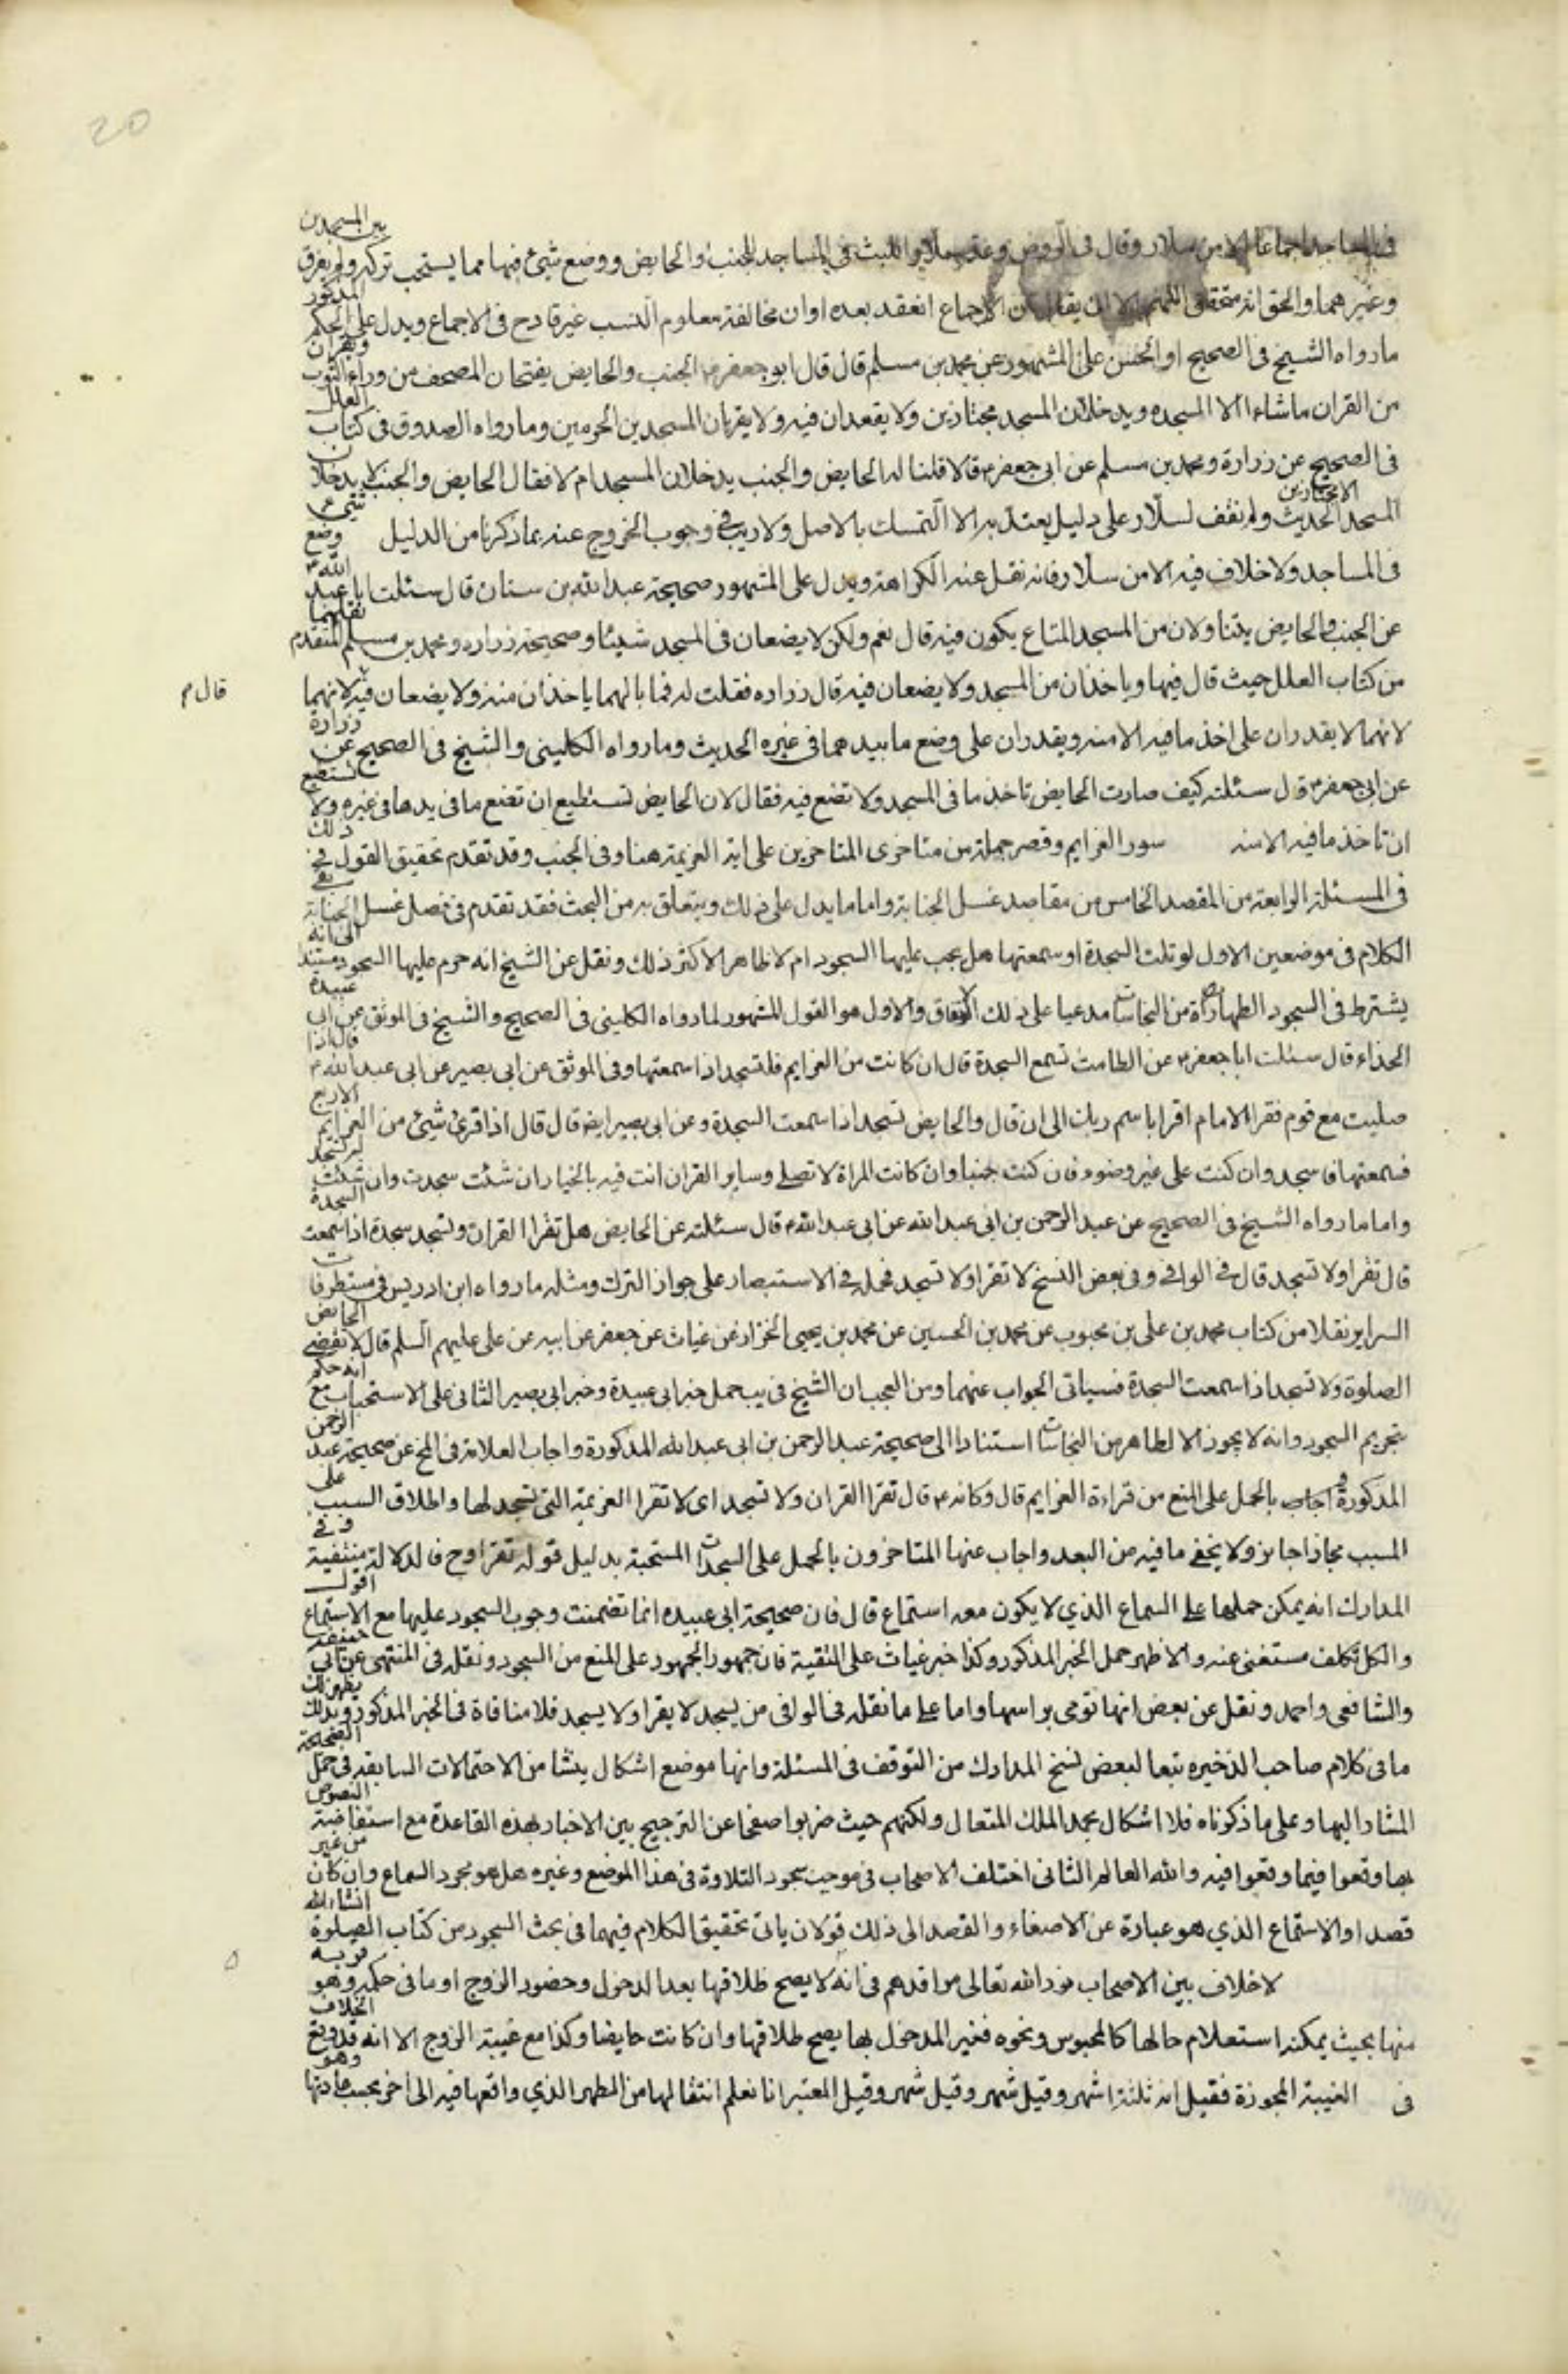 20
في المساجد اجماعا الا من سلار وقال في الروض وعد سلار اللبث في المساجد للجنب والحايض ووضع شيئ فيها مما يستحب تركه ولم يفرق بين المسجدين
وغيرهما والحق انه متحقق اللهم الا ان يقال ان الاجماع انعقد بعده او ان مخالفة معلوم النسب غير قادح في الاجماع ويدل على الحكم المذكور
ما رواه الشيخ في الصحيح او الحسن على المشهور عن محمد بن مسلم قال قال ابو جعفر ع الجنب والحايض يفتحان المصحف من وراء الثوب ويقران
من القران ما شاءا الا السجده ويدخلان المسجد مجتازين ولا يقعدان فيه ولا يقربان المسجدين الحرمين وما رواه الصدوق في كتاب العلل
في الصحيح عن زرارة ومحمد بن مسلم عن ابي جعفر ع قالا قلنا له الحايض والجنب يدخلان المسجد ام لا فقال الحايض والجنب لا يدخلان
المسجد الا مجتازين الحديث ولم نقف لسلار على دليل يعتد به الا التمسك بالاصل ولا ريب في وجوب الخروج عنه بما ذكرنا من الدليل وضع شيئ
في المساجد ولا خلاف فيه الا من سلار فانه نقل عنه الكراهة ويدل على المشهور صحيحة عبد الله بن سنان قال سئلت ابا عبد الله ع
عن الجنب والحايض يتناولان من المسجد المتاع يكون فيه قال نعم ولكن لا يضعان في المسجد شيئا وصحيحة زراره ومحمد بن مسلم المتقدم نقلهما
من كتاب العلل حيث قال فيها وياخذان من المسجد ولا يضعان فيه قال زراره فقلت له فما بالهما ياخذان منه ولا يضعان فيه لانهما
قال م
لانهما لا يقدران على اخذ ما فيه الا منه ويقدران على وضع ما بيدهما في غيره الحديث وما رواه الكليني والشيخ في الصحيح عن زرارة
عن ابي جعفر ع قال سئلته كيف صارت الحايض تاخذ ما في المسجد ولا تضع فيه فقال لان الحايض تستطيع ان تضع ما في يدها في غيره ولا تستطيع
ان تاخذ ما فيه الا منه سور العزايم وقصر جملة من متاخري المتاخرين على اية العزيمة هنا وفي الجنب وقد تقدم تحقيق القول في ذلك
في المسئلة الرابعة من المقصد الخامس من مقاصد غسل الجنابة واما ما يدل على ذلك ويتعلق به من البحث فقد تقدم في فصل غسل الجنابة بقي
الكلام في موضعين الاول لو تلت السجدة او سمعتها هل يجب عليها السجود ام لا ظاهر الاكثر ذلك ونقل عن الشيخ انه حرم عليها السجود مستندا الى انه
يشترط في السجود الطهارة من النجاسات مدعيا على ذلك الاتفاق والاول هو القول المشهور لما رواه الكليني في الصحيح والشيخ في الموثق عن ابي عبيدة
الحذاء قال سئلت ابا جعفر ع عن الطامث تسمع السجدة قال ان كانت من العزايم فلتسجد اذا سمعتها وفي الموثق عن ابي بصير عن ابي عبد الله ع قال اذا
صليت مع قوم فقرا الامام اقرا باسم ربك الى ان قال والحايض تسجد اذا سمعت السجدة وعن ابي بصير ايضا قال قال اذا قرئ شيئ من العزايم الاربع
فسمعتها فاسجد وان كنت على غير وضوء وان كنت جنبا وان كانت المراة لا تصلي وساير القران انت فيه بالخيار ان شئت سجدت وان شئت لم تسجد
واما ما رواه الشيخ في الصحيح عن عبد الرحمن بن ابي عبد الله عن ابي عبد الله ع قال سئلته عن الحايض هل تقرا القران وتسجد سجدة اذا سمعت السجدة
قال تقرا ولا تسجد قال في الوافي وفي بعض النسخ لا تقرا ولا تسجد فحمله في الاستبصار على جواز الترك ومثله ما رواه ابن ادريس في مستطرفات
السراير نقلا من كتاب محمد بن علي بن محبوب عن محمد بن الحسين عن محمد بن يحيى الخزاز عن غياث عن جعفر عن ابيه عن علي عليهم السلم قال لا تقضي الحايض
الصلوة ولا تسجد اذا سمعت السجدة فسياتي الجواب عنهما ومن العجب ان الشيخ في يب حمل خبر ابي عبيدة وخبر ابي بصير الثاني على الاستحباب مع انه حكم
بتحريم السجود وانه لا يجوز الا لطاهر من النجاسات استنادا الى صحيحة عبد الرحمن بن ابي عبد الله المذكورة واجاب العلامة في المخ عن صحيحة عبد الرحمن
المذكورة اجاب بالحمل على المنع من قراءة العزايم قال وكانه ع قال تقرا القران ولا تسجد اي لا تقرا العزيمة التي تسجد لها واطلاق السبب على
المسبب مجازا جايز ولا يخفى ما فيه من البعد واجاب عنها المتاخرون بالحمل على السجدات المستحبة بدليل قوله تقرا وح فالدلالة منتفية وفي
المدارك انه يمكن حملها على السماع الذي لا يكون معه استماع قال فان صحيحة ابي عبيده انما تضمنت وجوب السجود عليها مع الاستماع اقول
والكل تكلف مستغنى عنه والاظهر حمل الخبر المذكور وكذا خبر غياث على التقية فان جمهور الجمهور على المنع من السجود ونقله في المنتهى عن ابي حنيفة
والشافعي واحمد ونقل عن بعض انها تومي براسها واما على ما نقله في الوافي من يسجد لا يقرا ولا يسجد فلا منافاة في الخبر المذكور وبذلك يظهر لك
ما في كلام صاحب الذخيره تبعا لبعض نسخ المدارك من التوقف في المسئلة وانها موضع اشكال ينشا من الاحتمالات السابقه في حمل الصحيحة
المشار اليها وعلى ما ذكرناه فلا اشكال بحمد الملك المتعال ولكنهم حيث ضربوا صفحا عن الترجيح بين الاخبار بهذه القاعدة مع استفاضة النصوص
بها وقعوا فيما وقعوا فيه والله العالم الثاني اختلف الاصحاب في موجب سجود التلاوة في هذا الموضع وغيره هل هو مجرد السماع وان كان من غير
قصد او الاستماع الذي هو عبارة عن الاصغاء والقصد الى ذلك قولان ياتي تحقيق الكلام فيهما في بحث السجود من كتاب الصلوة انشاء الله
لا خلاف بين الاصحاب نور الله تعالى مراقدهم في انه لا يصح طلاقها بعد الدخول وحضور الزوج او ما في حكمه وهو قربه
منها بحيث يمكنه استعلام حالها كالمحبوس ونحوه فغير المدخول بها يصح طلاقها وان كانت حايضا وكذا مع غيبة الزوج الا انه قد وقع الخلاف
في الغيبة المجوزة فقيل انه ثلثة اشهر وقيل شهر وقيل شهر وقيل المعتبر انا نعلم انتقالها من الطهر الذي واقعها فيه الى اخر بحسب عادتها وهو